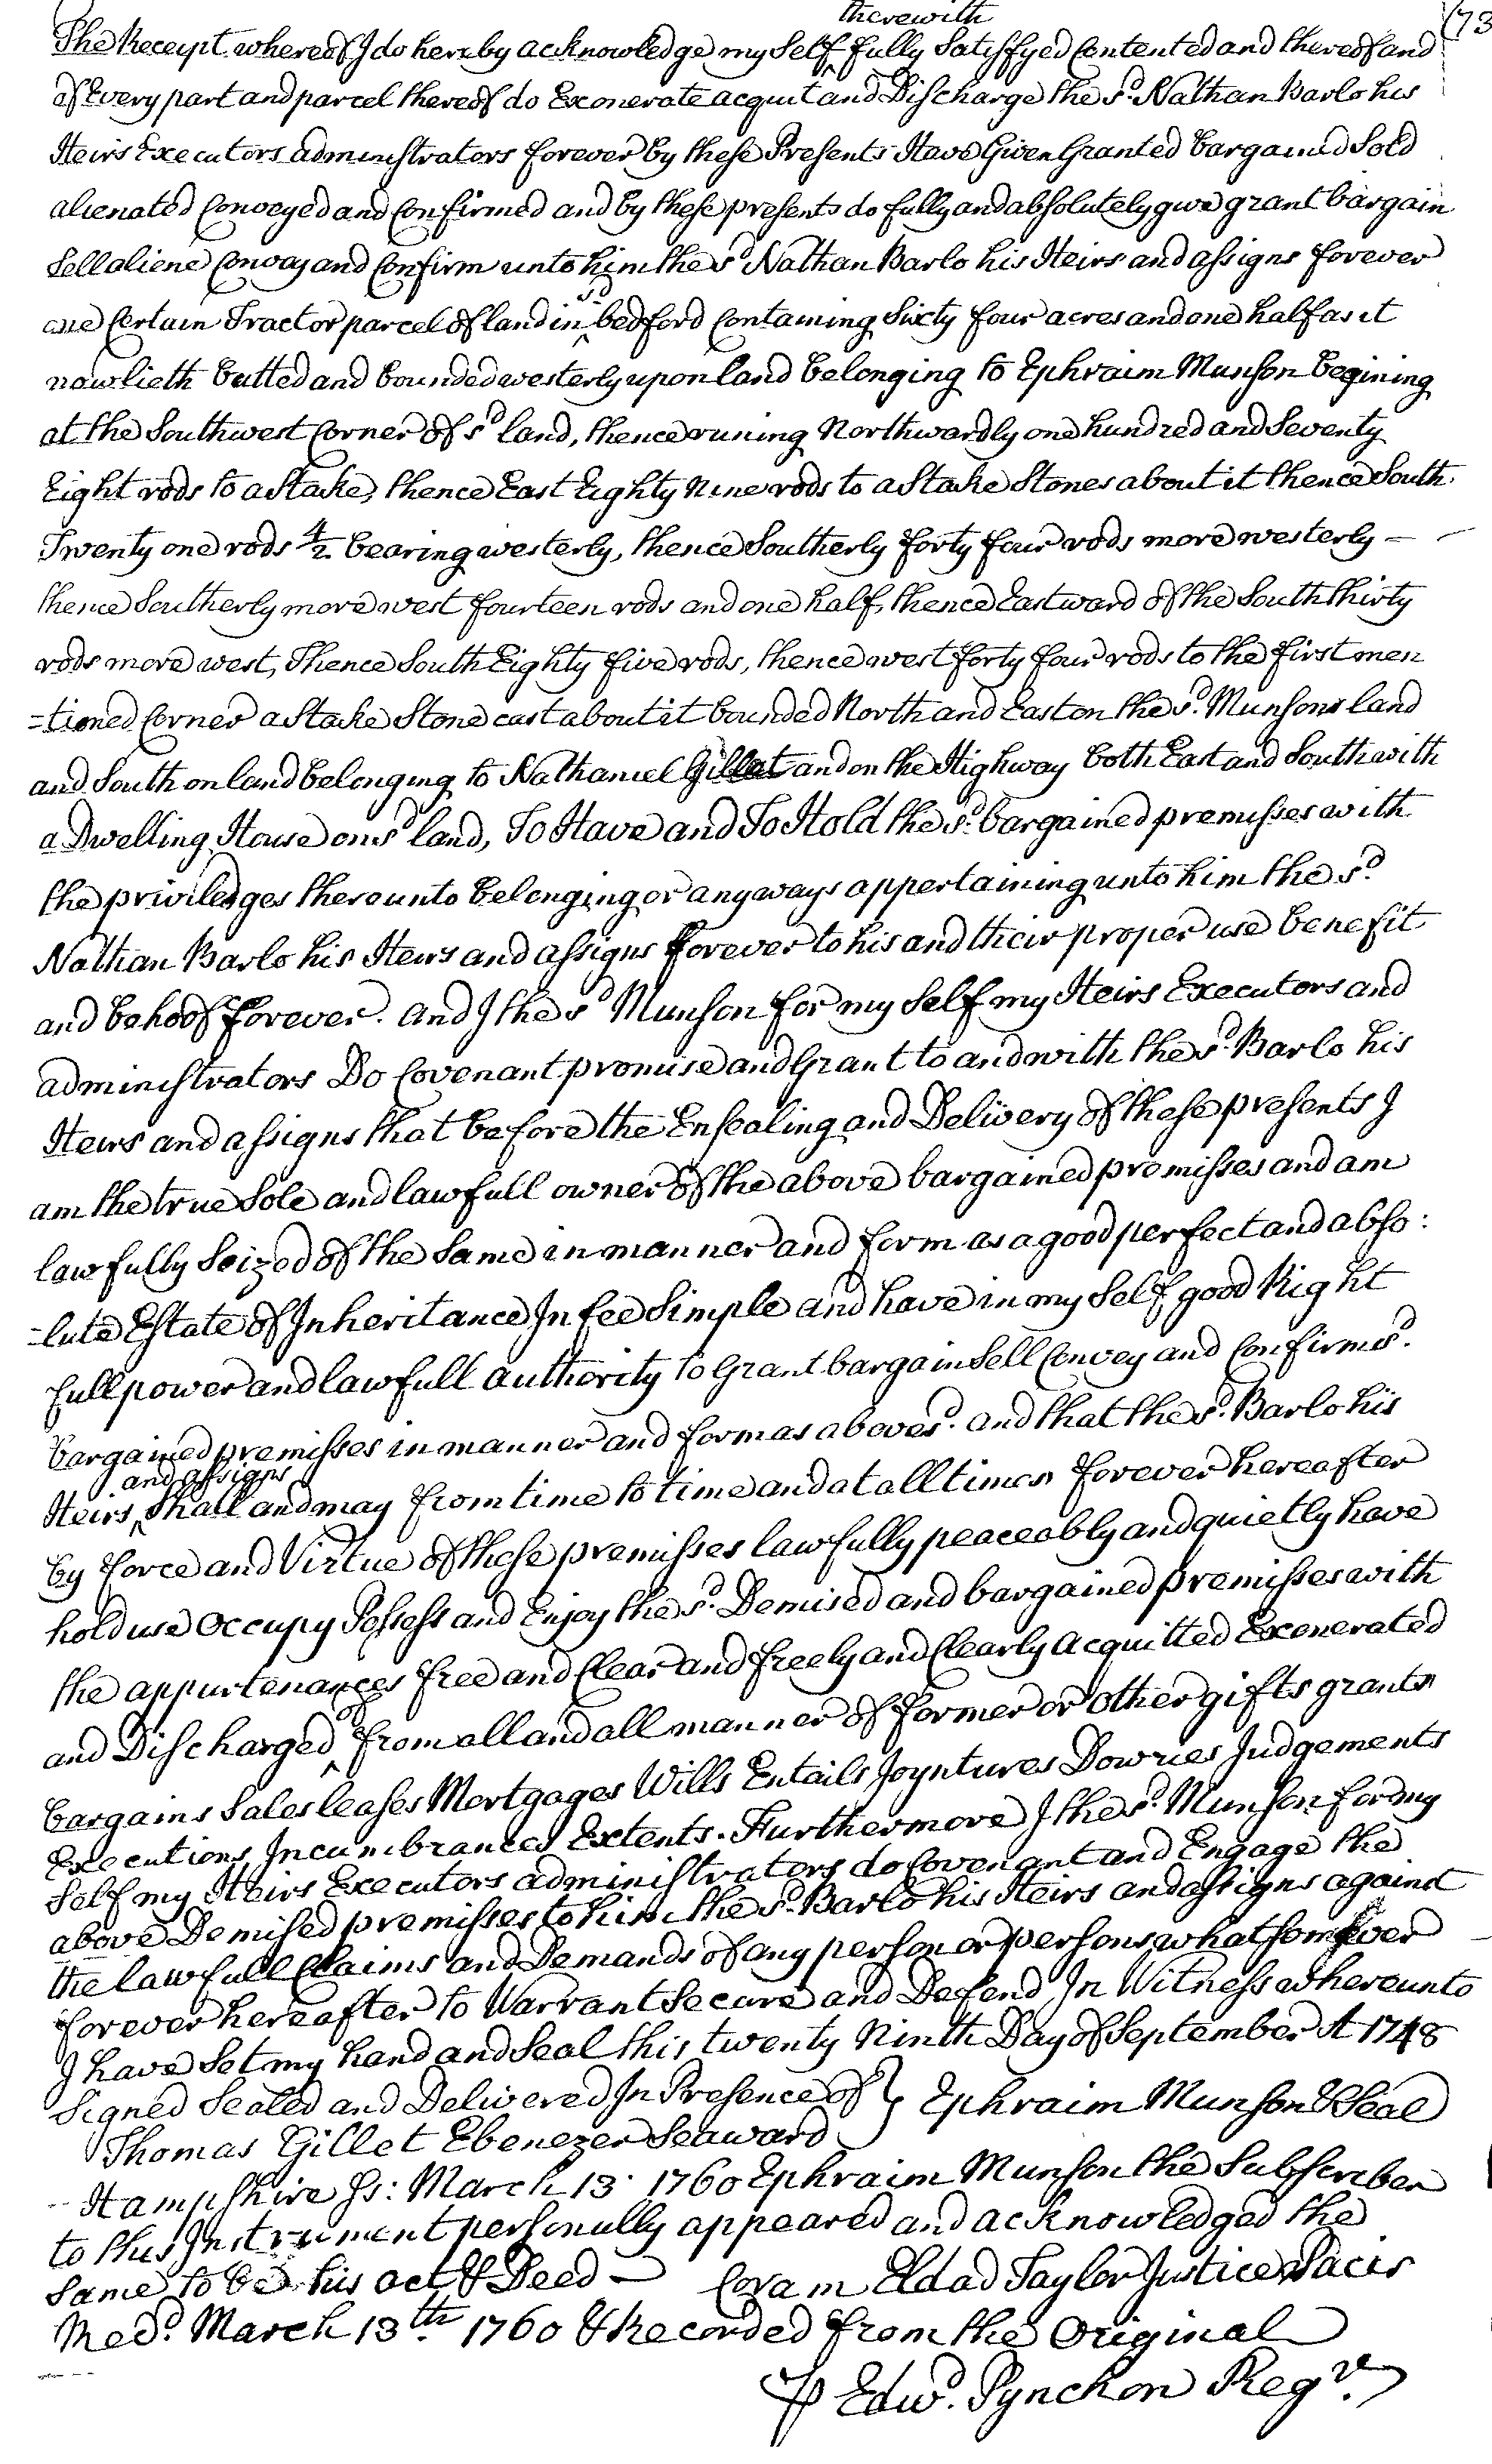 (73
therewith
The Receipt whereof I do hereby acknowledge my Self ‸ fully Satisfyed Contented and thereof and
of Every part and parcel thereof do Exonerate acquit and Discharge the sd. Nathan Barlo his
Heirs Executors administrators forever by these Presents Have Given Granted bargained Sold
alienated Conveyed and Confirmed and by these presents do fully and absolutely give grant bargain
Sell aliene Convay and Confirm unto him the sd Nathan Barlo his Heirs and assigns forever
sd
one Certain Tract or parcel of land in ‸ bedford Containing Sixty four acres and one half as it
now lieth butted and bounded westerly upon land belonging to Ephraim Munson begining
at the Southwest Corner of sd land, thence runing Northwardly one hundred and Seventy
Eight rods to a Stake, thence East Eighty Nine rods to a Stake Stones about it thence South
Twenty one rods ½ bearing westerly, thence Southerly forty four rods more westerly –
thence Southerly more west fourteen rods and one half, thence Eastward of the South thirty
rods more west, Thence South Eighty five rods, thence west forty four rods to the first men
=tioned Corner a Stake Stone cast about it bounded North and East on the sd. Munsons land
and South on land belonging to Nathaniel Gillet and on the Highway both East and South with
a Dwelling House on sd land, To Have and To Hold the sd. bargained premisses with
the priviledges thereunto belonging or anyways appertaining unto him the sd.
Nathan Barlo his Heirs and assigns forever to his and their proper use benefit
and behoof forever. and I the sd Munson for my Self my Heirs Executors and
administrators Do Covenant promise and Grant to and with the sd. Barlo his
Heirs and assigns that before the Ensealing and Delivery of these presents I
am the true Sole and lawfull owner of the above bargained premisses and am
lawfully Seized of the Same in manner and form as a good perfect and abso:
=lute Estate of Inheritance In fee Simple and have in my Self good Right
full power and lawfull authority to Grant bargain Sell Convey and Confirm sd.
bargained premisses in manner and form as above sd. and that the sd. Barlo his
and assigns
Heirs ‸ Shall and may from time to time and at all times forever hereafter
by force and Virtue of these premisses lawfully peaceably and quietly have
hold use Occupy Possess and Enjoy the sd. Demised and bargained premisses with
the appurtenances free and Clear and freely and Clearly acquitted Exonerated
of
and Discharged ‸ from all and all manner of former or other gifts grants
bargains Sales leases Mortgages Wills Entails Joyntures Dowries Judgements
Executions Incumbrances Extents. Furthermore I the sd. Munson for my
Self my Heirs Executors administrators do Covenant and Engage the
above Demised premisses to him the sd. Barlo his Heirs and assigns against
the lawfull Claims and Demands of any person or persons whatsomever
forever hereafter to Warrant Secure and Defend In Witness whereunto
I have Set my hand and Seal this twenty Ninth Day of September A 1748
Signed Sealed and Delivered In Presence of } Ephraim Munson & Seal
Thomas Gillet Ebenezer Seaward
Hampshire Ss: March 13. 1760 Ephraim Munson the Subscriber
to this Instrument personally appeared and acknowledged the
Same to be his act & Deed – Coram Eldad Taylor Justice Pacis
Red. March 13th. 1760 & Recorded from the Original
⅌ Edwd. Pynchon Regr.